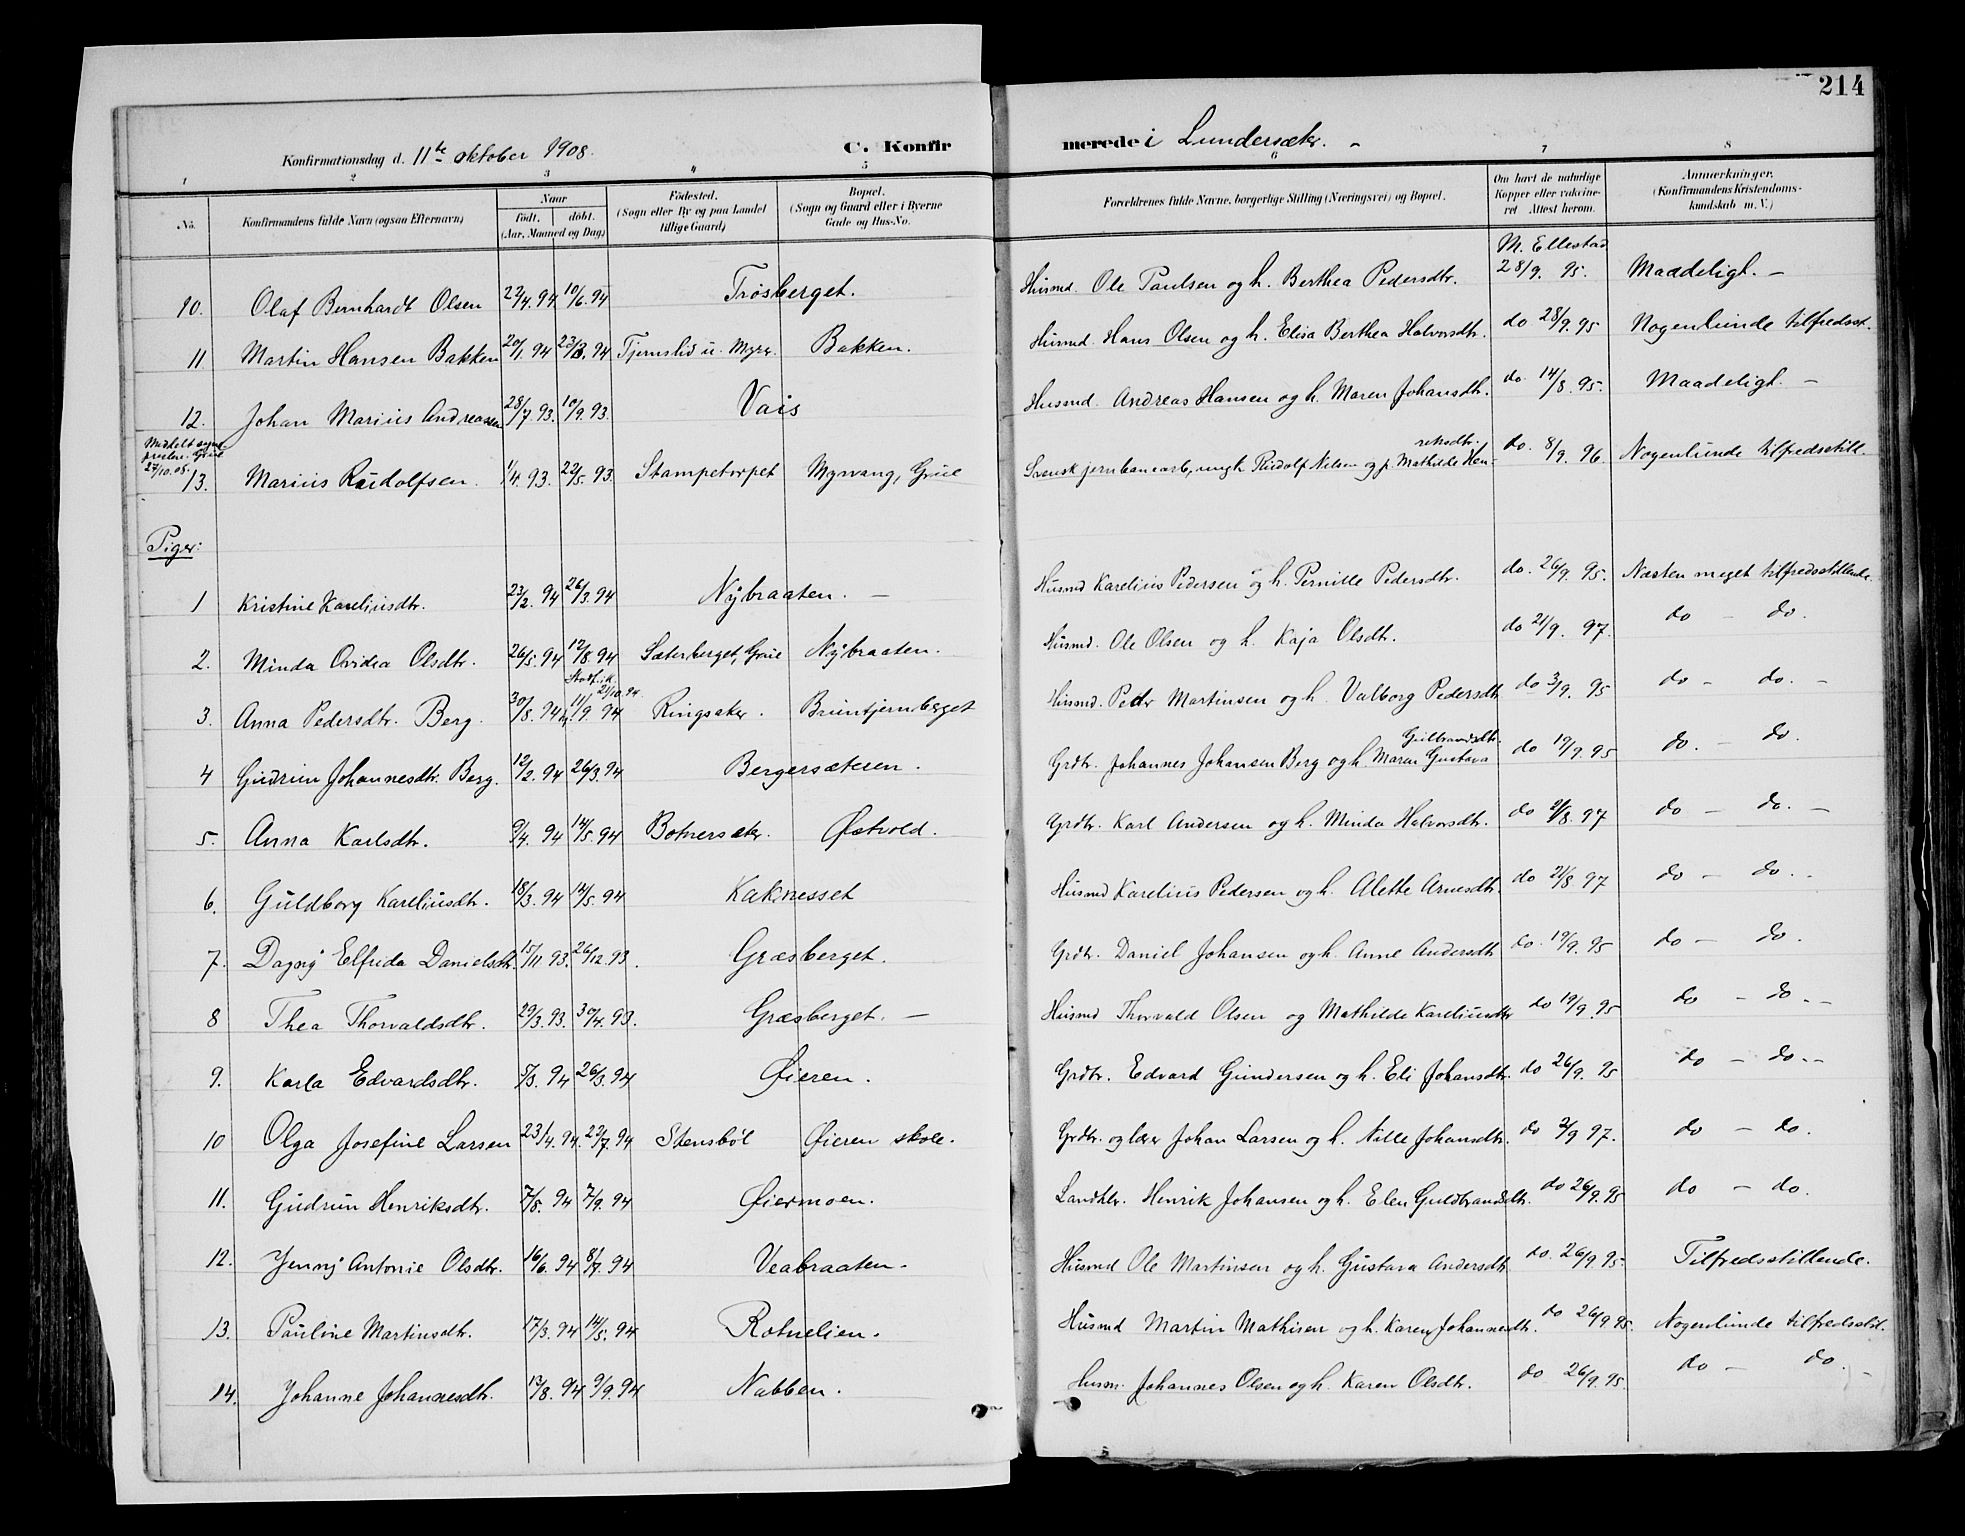 214
Konfirmationsdag d. 11te oktober 1908. C. Konfirmerede i Lundersæter.
1 2 3 4 5 6 7 8
No. Konfirmandens fulde Navn (ogsaa Efternavn) Naar født. døbt. (Aar, Maaned og Dag) Fødested. (Sogn eller By og paa Landet tillige Gaard) Bopæl. (Sogn og Gaard eller i Byerne Gade og Hus-No. Forældrenes fulde Navne, borgerlige Stilling (Næringsvei) og Bopæl. Om havt de naturlige Kopper eller vakcineret Attest herom. Anmærkninger. (Konfirmandens Kristendomskundskab m. V.)
10. Olaf Bernhardt Olsen 22/4. 94. 10/6. 94 Trøsberget. Husmd. Ole Paulsen og h. Berthea Pedersdtr. M. Ellestad 28/9. 95. Maadeligt. -
11 Martin Hansen Bakken 20/1. 94 23/3. 94 Tjernslid u. Myrer Bakken. Husmd. Hans Olsen og h. Elisa Berthea Halvorsdtr. do 28/9. 95 Nogenlunde tilfredsst.
12. Johan Marius Andreassen 28/7. 93. 10/9. 93. Vais Husmd. Andreas Hansen og h. Maren Johansdtr. do. 14/8. 95. Maadeligt. -
Meddelt sogneprestn. i Grue 27/10.08.
13. Marius Rudolfsen. 1/4. 93. 22/5. 93. Stampetorpet Myrvang, Grue Svensk jernbanearb., ungk. Rudolf Nilsen og p. Mathilde Henreksdtr. do. 8/9. 96. Nogenlunde tilfredsstill.
Piger:
1 Kristine Kareliusdtr. 23/2. 94 26/3. 94 Nybraaten. - Husmd Karelius Pedersen og h. Pernille Pedersdtr. do. 26/9. 95. Næsten meget tilfredsstillende.
2. Minda Ovidea Olsdtr. 26/5. 94 12/8. 94 Sæterberget, Grue Nybraaten. Husmd. Ole Olsen og h. Kaja Olsdtr. do 21/9. 97. do - do.
3. Anna Pedersdtr. Berg. 30/8. 94 11/9. 94 Stadf. i K. 21/10. 94. Ringsaker. Bruntjernberget Husmd. Peder Martinsen og h. Valborg Pedersdtr do 3/9. 95 do - do. -
4 Gudrun Johannesdtr. Berg. 12/2. 94 26/3. 94 Bergersæteren. Grdbr. Johannes Johansen Berg og h. Maren Gustava Gulbrandsdtr. do 19/9. 95 do. - do.
5. Anna Karlsdtr. 9/4. 94 14/5. 94 Botnersæter. Østvold. Grdbr. Karl Andersen og h. Minda Halvorsdtr. do 21/8. 97 do - do. -
6. Guldborg Kareliusdtr. 18/3. 94 14/5. 94 Kaknesset Husmd Karelius Pedersen og h. Alette Arnesdtr. do 21/8 97 do - do. -
7. Dagny Elfrida Danielsdtr. 15/11. 93. 26/12. 93. Græsberget. Grdbr. Daniel Johansen og h. Anne Andersdtr do. 19/9. 95 do - do.
8 Thea Thorvaldsdtr. 29/3. 93. 30/4. 93. Græsberget. - Husmd Thorvald Olsen og Mathilde Kareliusdtr do 19/9. 95 do - do. -
9. Karla Edvardsdtr. 5/3. 94 26/3. 94 Øieren. Grdbr. Edvard Gundersen og h. Eli Johansdtr. do 26/9. 95 do - do. -
10 Olga Josefine Larsen 23/4. 94. 22/7. 94 Stensbøl Øieren skole. Grdbr. og lærer Johan Larsen og h. Nille Johansdtr. do 2/9 97. do - do.
11. Gudrun Henriksdtr. 7/8. 94 7/9. 94 Øiermoen. Landhlr. Henrik Johansen og h. Elen Guldbrandsdtr. do 26/9. 95 do - do.
12. Jenny Antonie Olsdtr. 16/6. 94 8/7. 94 Veabraaten. Husmd Ole Martinsen og h. Gustava Andersdtr do. 26/9 95. Tilfredsstillende.
13. Pauline Martinsdtr. 17/3. 94 14/5. 94 Rotnelien. Husmd Martin Mathisen og h. Karen Johannesdtr. do 26/9. 95. Nogenlunde tilfredsstil.
14. Johanne Johannesdtr. 13/8. 94 9/9. 94 Nabben. Husm. Johannes Olsen og h. Karen Olsdtr. do 26/9. 95. do - do. -